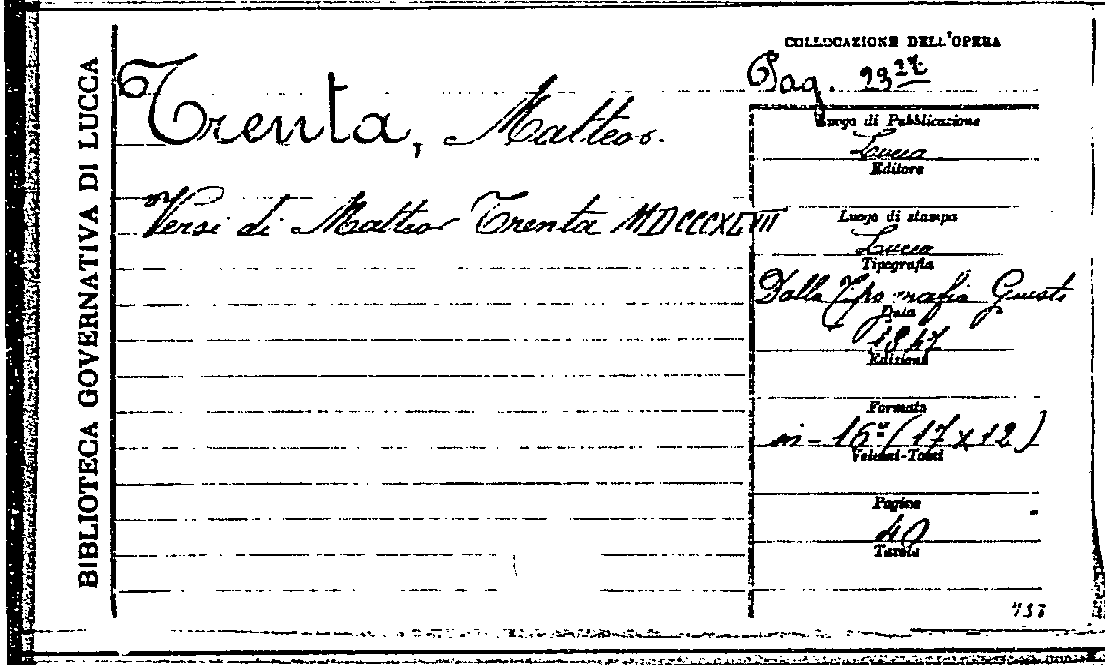 BIBLIOTECA GOVERNATIVA DI LUCCA
Trenta, Matteo.
Versi di Matteo Trenta MDCCCXLVII
COLLOCAZIONE DELL'OPERA
Pag.
Luogo di Pubblicazione
Lucca
Editore
Luogo di stampa
Lucca
Tipografia
Dalla Tipografia Giusti
Data
1847
Edizione
Formato
in-16º (17 x 12)
Volumi-Tomi
Pagine
40
Tavole